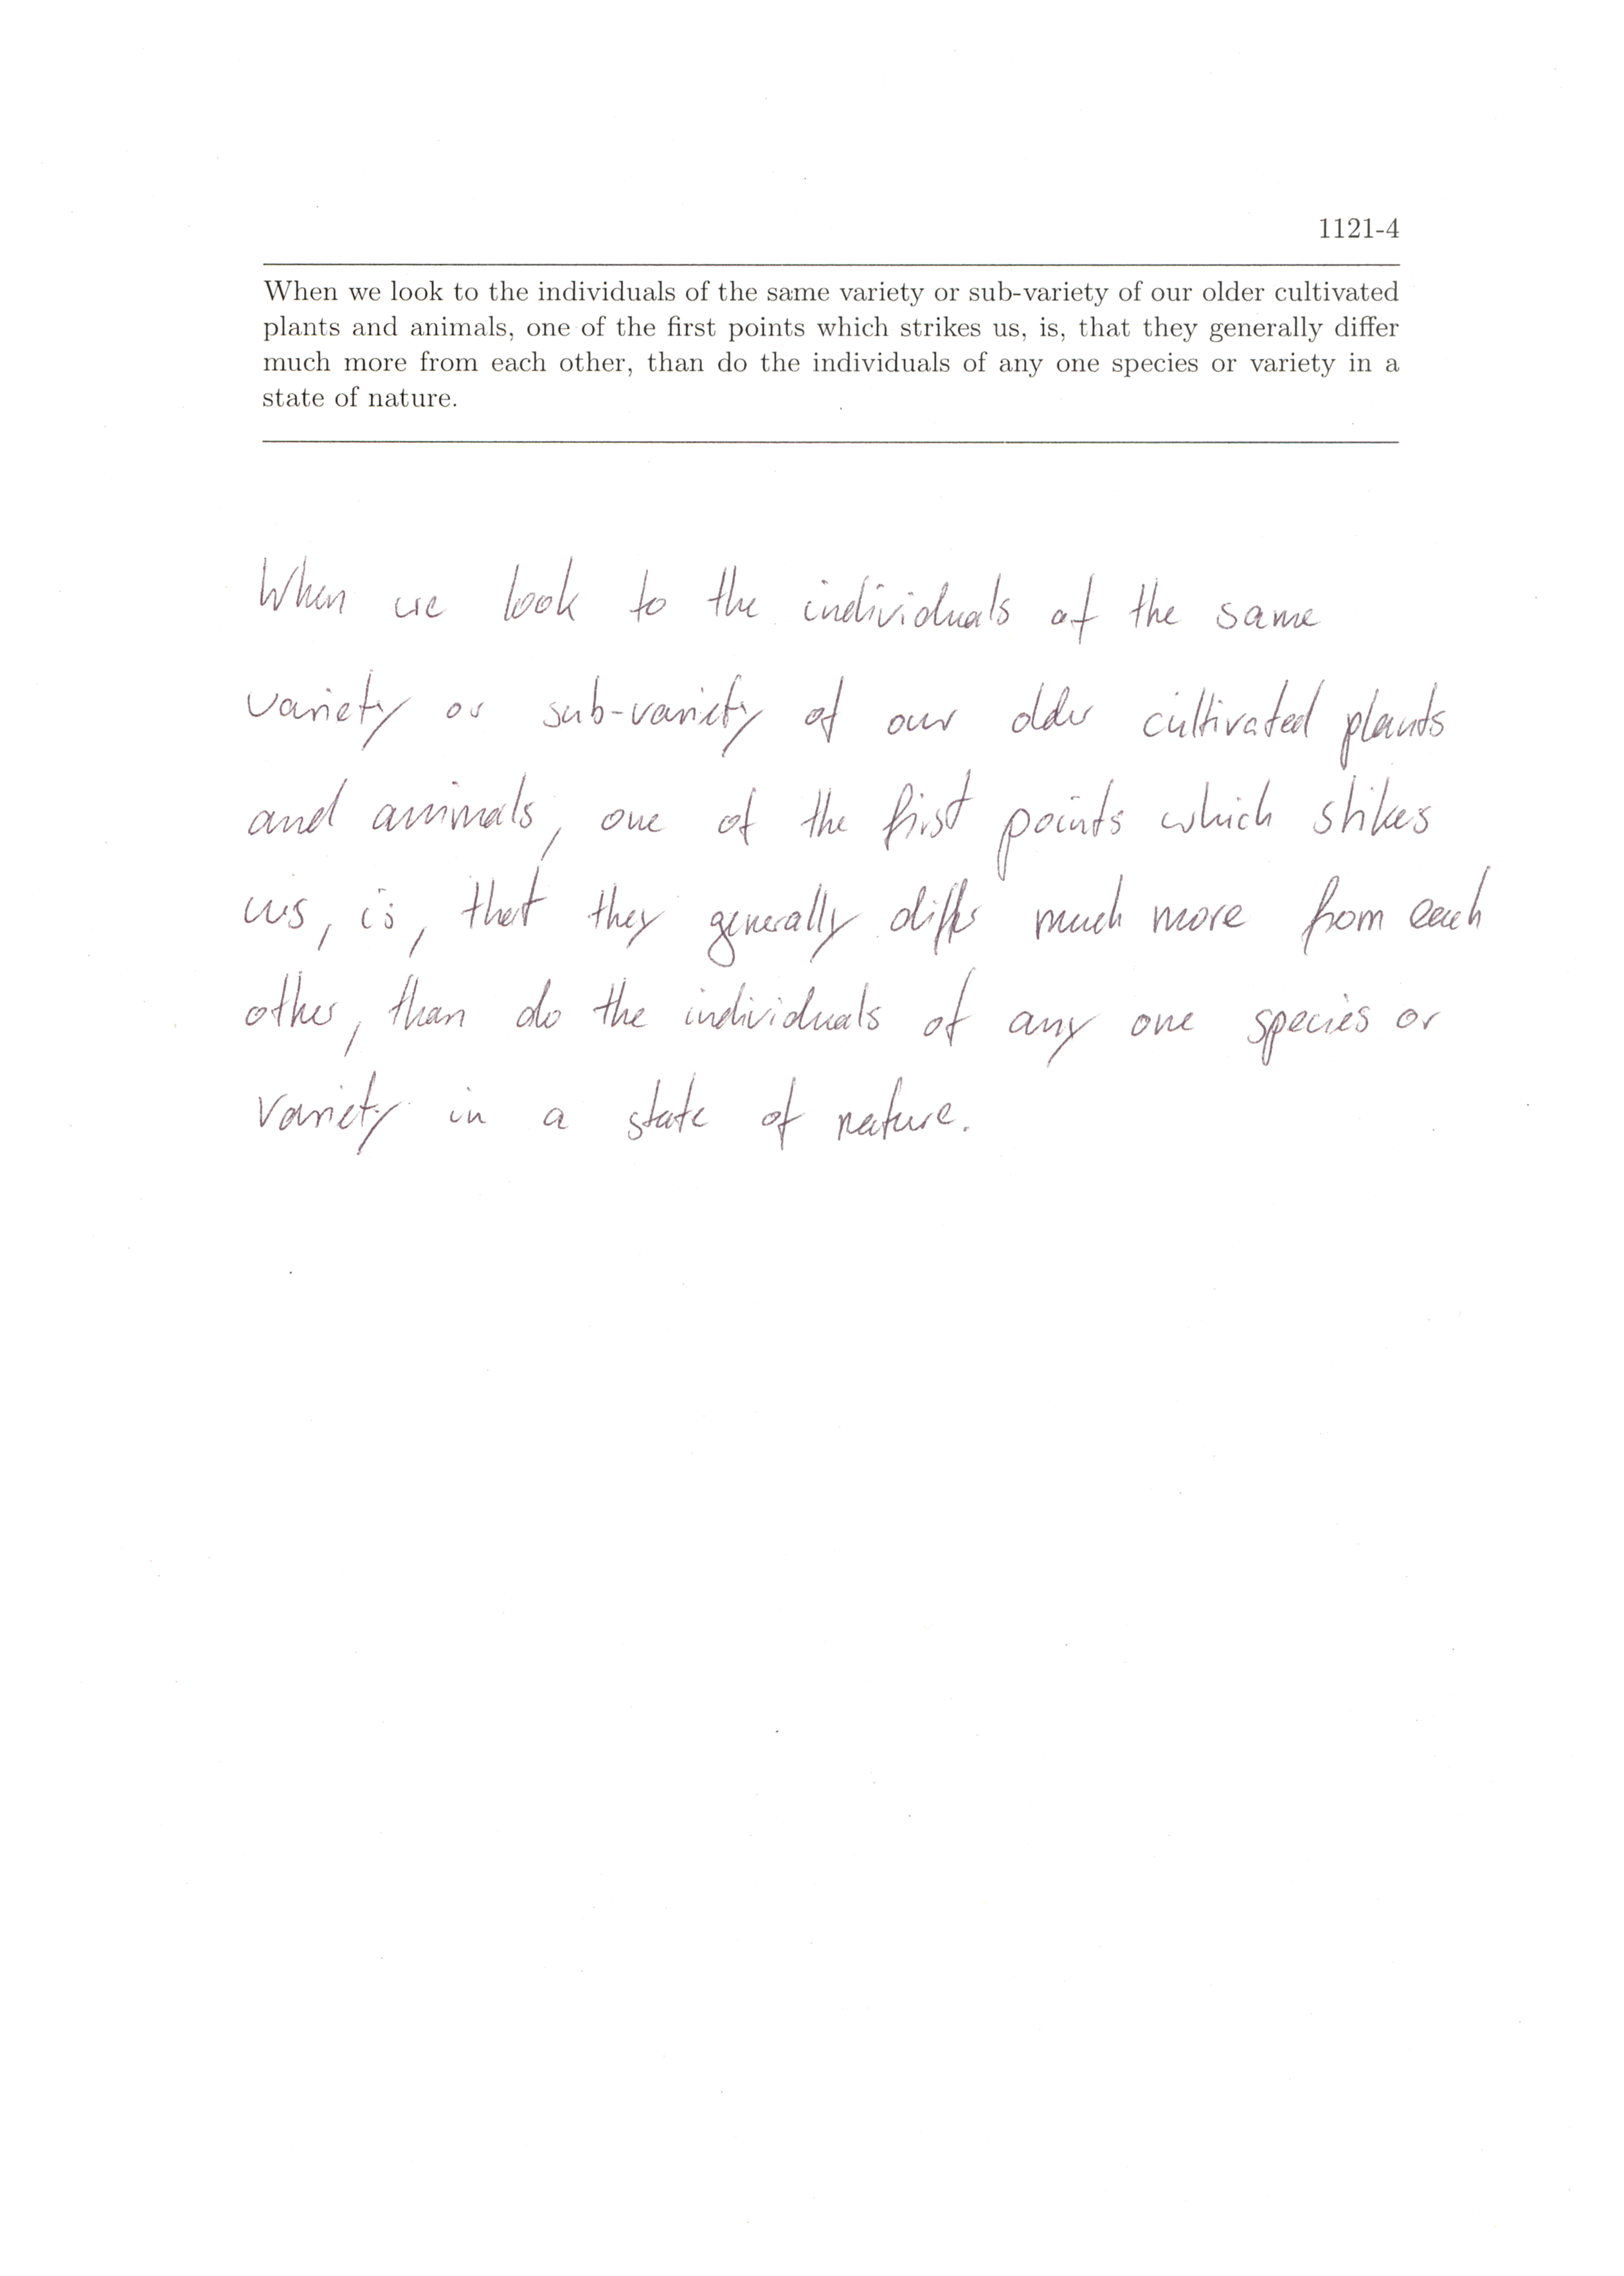 1121-4
When we look to the individuals of the same variety or sub-variety of our older cultivated
plants and animals, one of the first points which strikes us, is, that they generally differ
much more from each other, than do the individuals of any one species or variety in a
state of nature.
When we look to the individuals of the same
variety or sub-variety of our older cultivated plants
and animals, one of the first points which stikes
us, is, that they generally differ much more from each
other, than do the individuals of any one species or
variety in a state of nature.